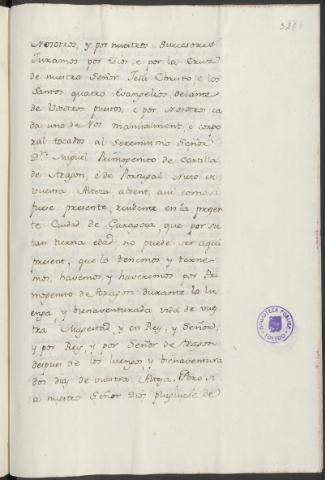 328
Nosotros, y por nuestros Successores
Juramos por Dios, e por la Cruz
de nuestro Señor Jesu Christo, e los
Santos quatro Evangelios, delante
de Vosotros puestos, e por Nosotros ca
da uno de Nos manualment, e corpo
ral tocados al Serenissimo Señor
Dn. Miguel Primogenito de Castilla
de Aragon, e de Portugal Nieto de
vuestra Alteza absent, assi como si
fuese presente, residente en la presen
te Ciudad de Zaragoza, que por su
tan tierna edad, no puede ser aqui
present, que la tenemos y terne
mos, havemos y haveremos por Pri
mogenito de Aragon durante la lu
enga, y bienaventurada vida de vues
tra Magestad, y en Rey, y Señor,
y por Rey, y por Señor de Aragon
despues de los luengos y bienaventura
dos dias de vuestra Alteza. Pero si
a nuestro Señor Dios pluguiese de
BIBLIOTECA PUBLICA
TOLEDO